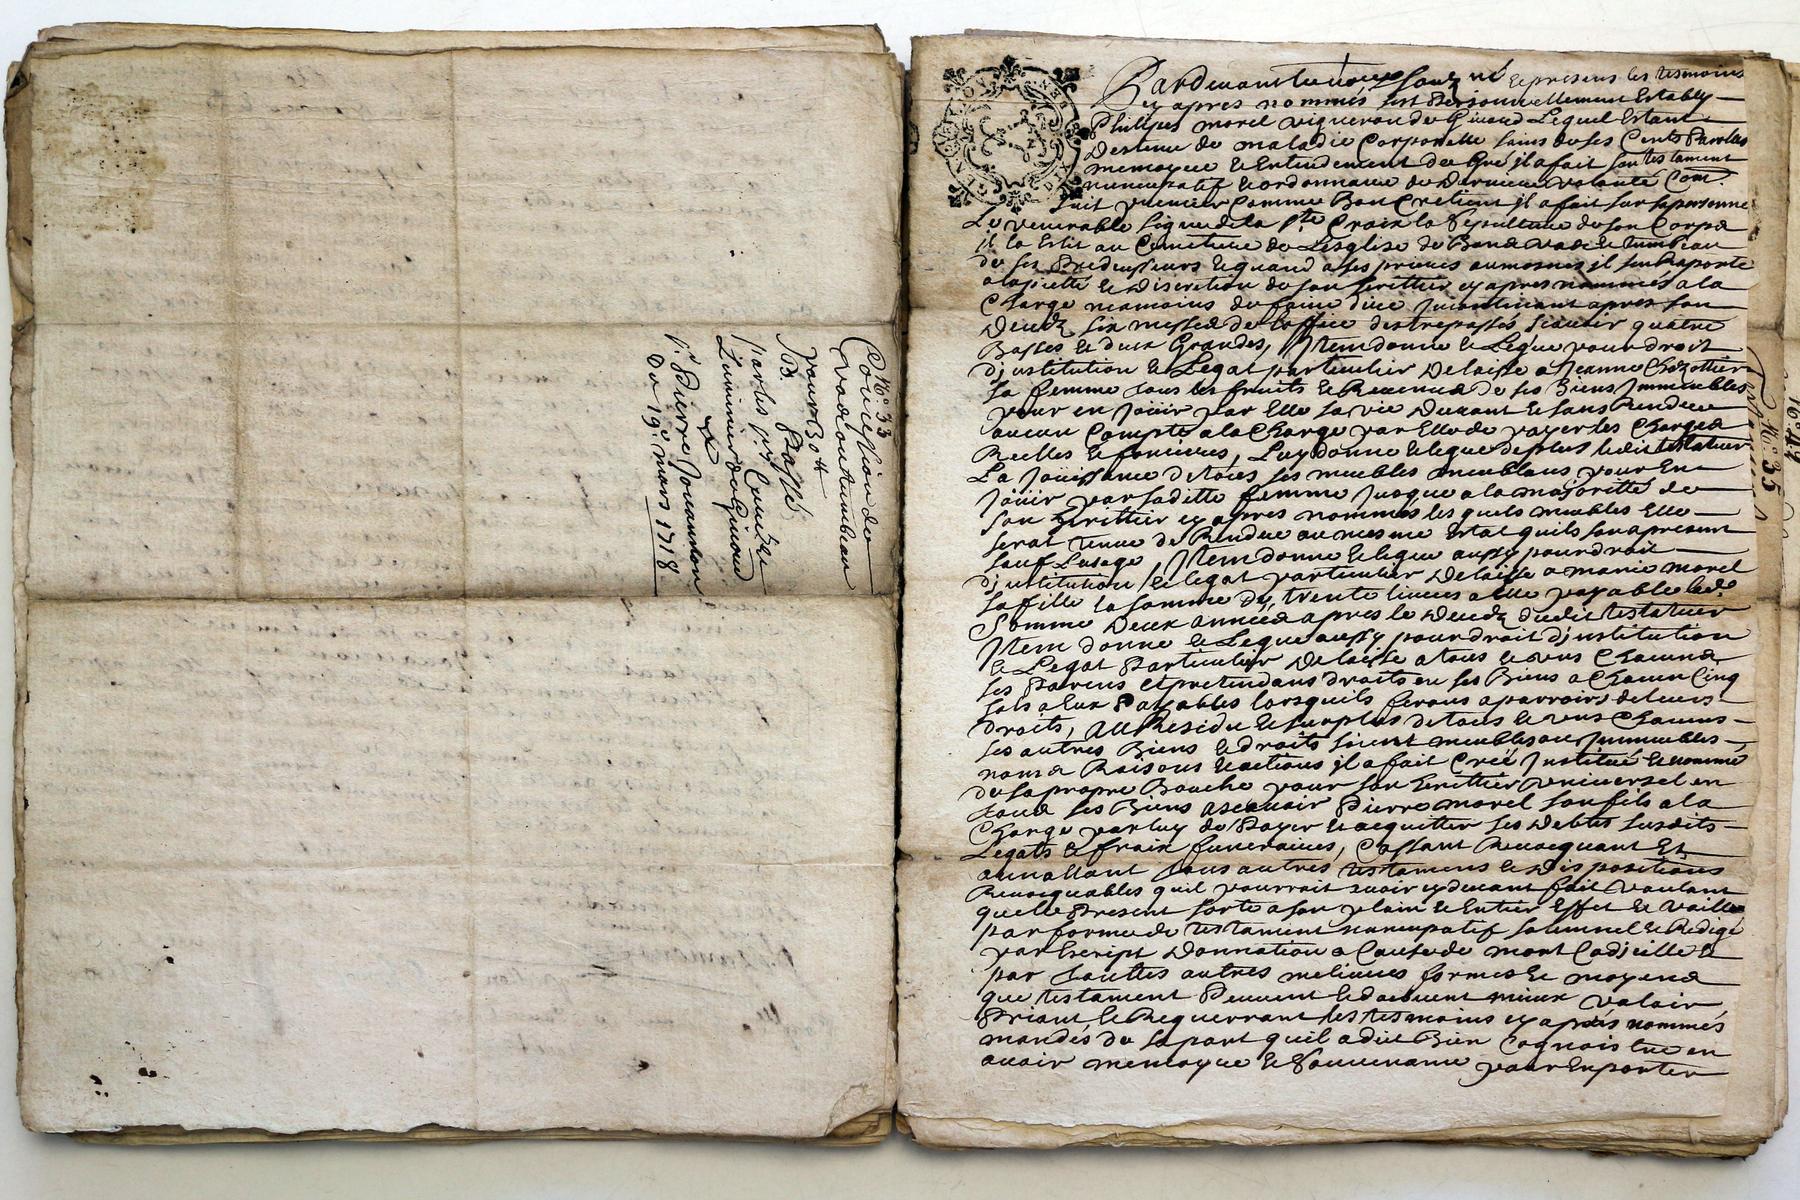 N.° 33
Concession de
vade ou tumbeau
pour 30 ₶
Passé
par les
Luminier de Givord
à
s.r Pierre Jouanston
Du 19.e mars 1718
Pardevant le no.re soubz.né et presens les tesmoins
cy apres nommés fut personnellement estably
Philipes morel vigneron de Givord Lequel estant
Destenu de maladie Corporelle sains de ses Cents parolles
memoyre et Entendement de Gré il a fait son testament
nuncupatif et ordonnance de Derniere volonté Com.e
suit premier Comme Bon Cretient il a fait sur sa personne
Le venerable signe de la s.te Croix la sepulture de son Corps
il la Eslit au Cimetiere de Lesglise de vade et tumbeau
de ses predecesseurs et quand a ses prieres aumosnes il s'en Raporte
a la pieté et Discretion de son heritier cy apres nommés a la
Charge neamoins de faire dire Incontinant apres son
Decedz six messes de l'office des trepassés scavoir quatre
Basses et deux Grandes, Item donne et Legue pour droit
d'institution et Legat particulier Delaisse a Jeanne
sa femme tous les fruits et Revenus de ses Biens Immeubles
pour en Jouir par Elle sa vie Durant et sans Rendre
aucun Compte a la Charge par Elle de payer les Charges
Reelles et foncieres, Luy donne et legue de plus ledit testateur
La Jouissance de tous ses meubles meublans pour En
Jouir par saditte femme Jusque a la majorité de
son heritier cy apres nommés les quels meubles Elle
serat tenue de Rendre au mesme Estat quils son apresent
sauf Lusage, Item donne et legue aussy pour droit
d'institution et legat particulier Delaisse a marie morel
sa fille la somme de trente livres a elle payable lad.e
somme Deux années apres le Decedz dudit testateur
Item donne et Legue aussy pour droit d'institution
et Legat particulier Delaisse a tous et uns Chacuns
ses parens et pretendans droits en ses Biens a Chacun Cinq
sols a Eux payables lorsquils feront aparroir de leurs
droits, au Residu et surplus de tous et uns Chacuns
ses autres Biens et droits soient meubles ou Immeubles
noms Raisons et actions il a fait Créé Institué et nommé
de sa propre Bouche pour son heritier universel en
tous ses Biens ascavoir Pierre morel son fils a la
Charge par luy de payer et acquitter ses Debtes susdits
Legats et fraix funeraires, Cassant Revocquant Et
annullant tous autres testamens et Dispositions
Revocquables quil pourroit avoir cy devant fait voulant
que le present sorte a son plain et Entier Effet et vaille
par forme de testament nuncupatif solemnel et Redigé
par Escript Donnation a Cause de mort Codicille et
par touttes autres melieures formes et moyens
que testament Peuvent et doivent mieux valoir
Priant et Requerrant les tesmoins cy aprés nommés
mandés de sa part quil a dit Bien Cognoistre en
avoir memoyre et souvenance pour En porter
N.° 35